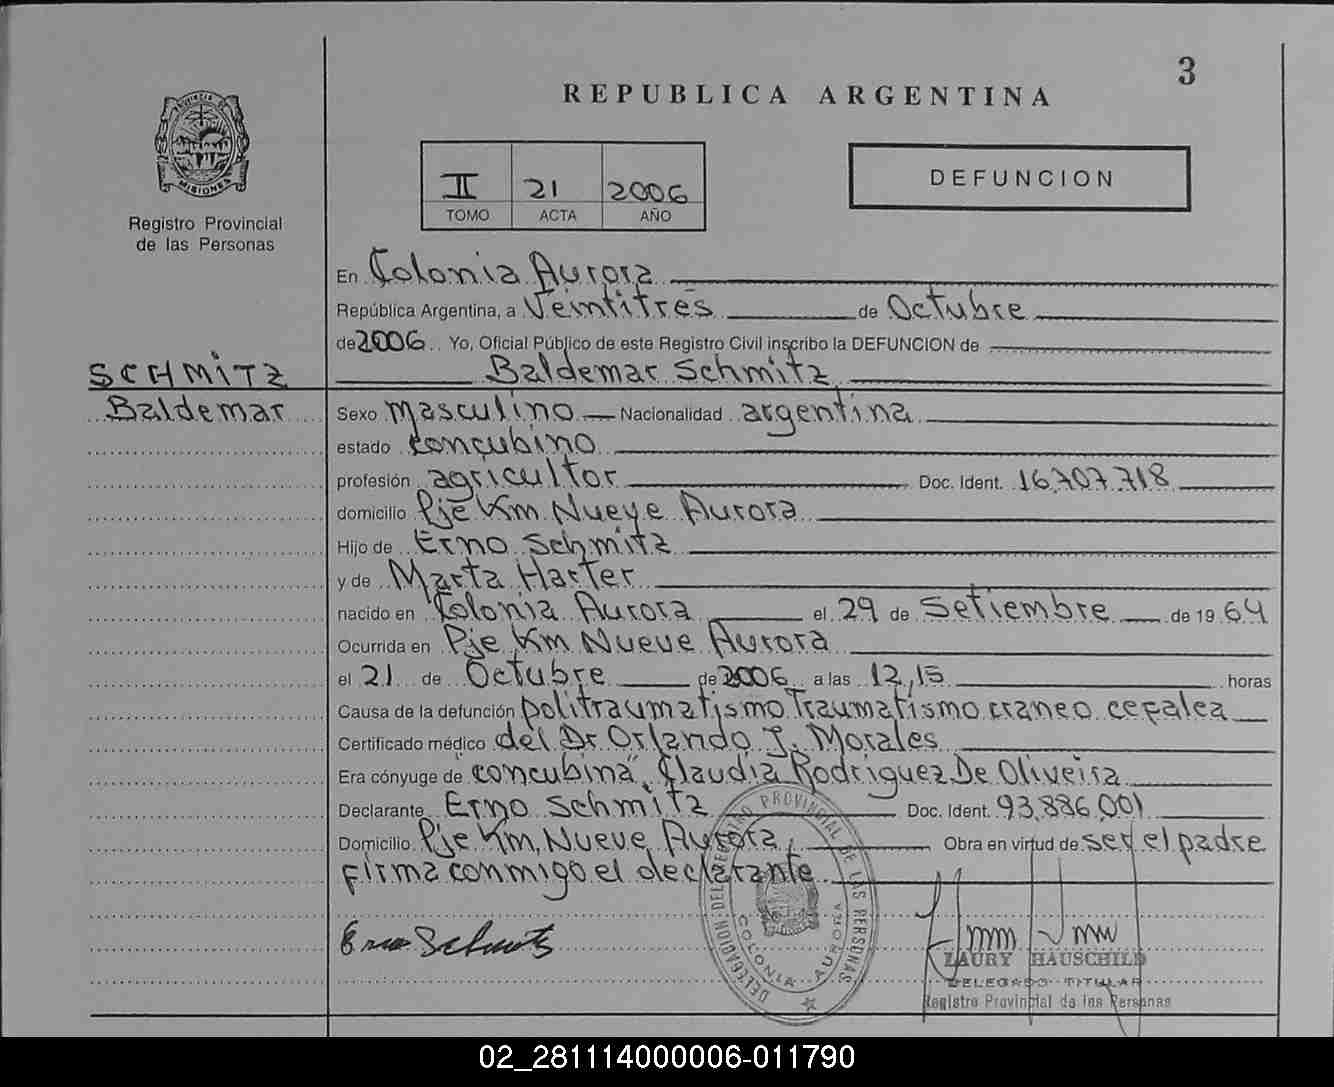 3
REPUBLICA ARGENTINA
PROVINCIA DE
MISIONES
Registro Provincial
de las Personas
II 21 2006
TOMO ACTA AÑO
DEFUNCION
En Colonia Aurora
República Argentina, a Veintitres de Octubre
de 2006 Yo, Oficial Público de este Registro Civil inscribo la DEFUNCION de
SCHMITZ Baldemar Schmitz
Baldemar Sexo masculino Nacionalidad argentina
estado concubino
profesión agricultor Doc. Ident. 16.707.718
domicilio Pje Km Nueve Aurora
Hijo de Erno Schmitz
y de Marta Harter
nacido en Colonia Aurora el 29 de Setiembre de 19 64
Ocurrida en Pje Km Nueve Aurora
el 21 de Octubre de 2006 a las 12,15 horas
Causa de la defunción politraumatismo Traumatismo craneo cefalea
Certificado médico del Dr Orlando J. Morales
Era cónyuge de "concubina" Claudia Rodriguez De Oliveira
Declarante Erno Schmitz Doc. Ident. 93.886.001
Domicilio Pje Km, Nueve Aurora, Obra en virtud de ser el padre
firma conmigo el declarante
Erno Schmitz
DELEGACION DEL REGISTRO PROVINCIAL DE LAS PERSONAS
COLONIA AURORA
LAURY HAUSCHILD
DELEGADO TITULAR
Registro Provincial de las Personas
02_281114000006-011790